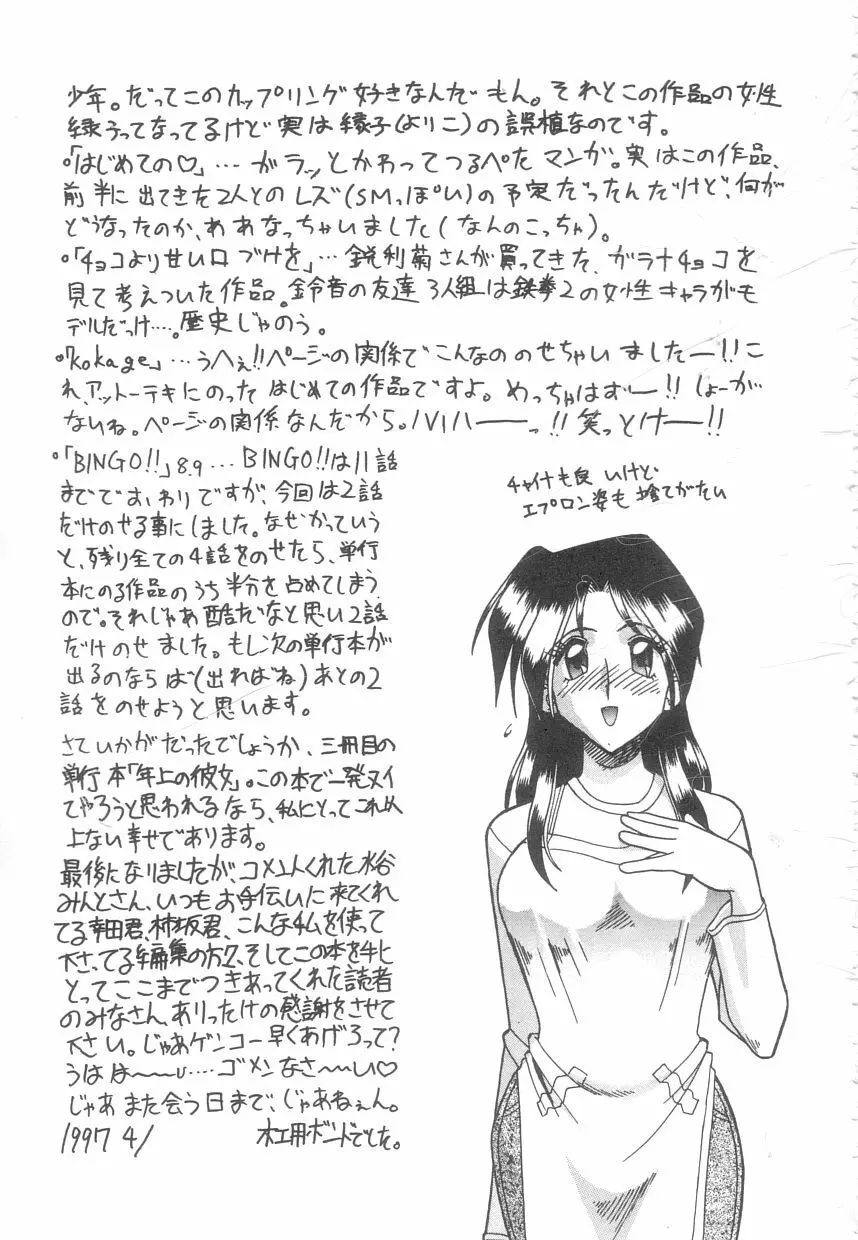 少年。だってこのカップリング好きなんだもん。それとこの作品の女性
縁うってなってるけど実は縁子(よりこ)の誤植なのです。
•「はじめての♡」…ガラッとかわってつるぺたマンガ。実はこの作品、
前半に出てきた2人とのレズ(SMっぽい)の予定だったんだけど、何が
どうなったのか、ああなっちゃいました(なんのこっちゃ)。
•「チョコより甘い口づけを」…鋭利菊さんが買ってきた ガラナチョコを
見て考えついた作品。鈴音の友達3人組は鉄拳2の女性キャラがモ
デルだっけ…。歴史じゃのう。
•「kokage」…うへぇ!!ページの関係でこんなの のせちゃいましたー!!こ
れ、アットーテキにのった はじめての作品ですよ。めっちゃはずー!!しょーが
ないね。ページの関係なんだから。ハハハーーっ!!笑っとけー!!
•「BINGO!!」8.9…BINGO!!は11話
まででおわりですが、今回は2話
だけのせる事にしました。なぜかっていう
と、残り全ての4話をのせたら、単行
本にのる作品のうち半分を占めてしまう
ので。それじゃあ酷だなと思い2話
だけのせました。もし次の単行本が
出るのならば(出ればね)あとの2
話をのせようと思います。
さていかがだったでしょうか、三冊目の
単行本「年上の彼女」。この本で一発ヌイ
てやろうと思われるなら、私にとってこれ以
上ない幸せであります。
最後になりましたが、コメントくれた水谷
みんとさん、いつもお手伝いに来てくれ
てる幸田君、柿坂君、こんな私を使って
下さってる編集の方々、そしてこの本を手に
とってここまでつきあってくれた読者
のみなさん、ありったけの感謝をさせて
下さい。じゃあゲンコー早くあげろって?
うはは〜〜…ゴメンなさ〜い♡
じゃあまた会う日まで、じゃあねぇん。
1997 4/ 木工用ボンドでした。
チャイナも良いけど
エプロン姿も捨てがたい